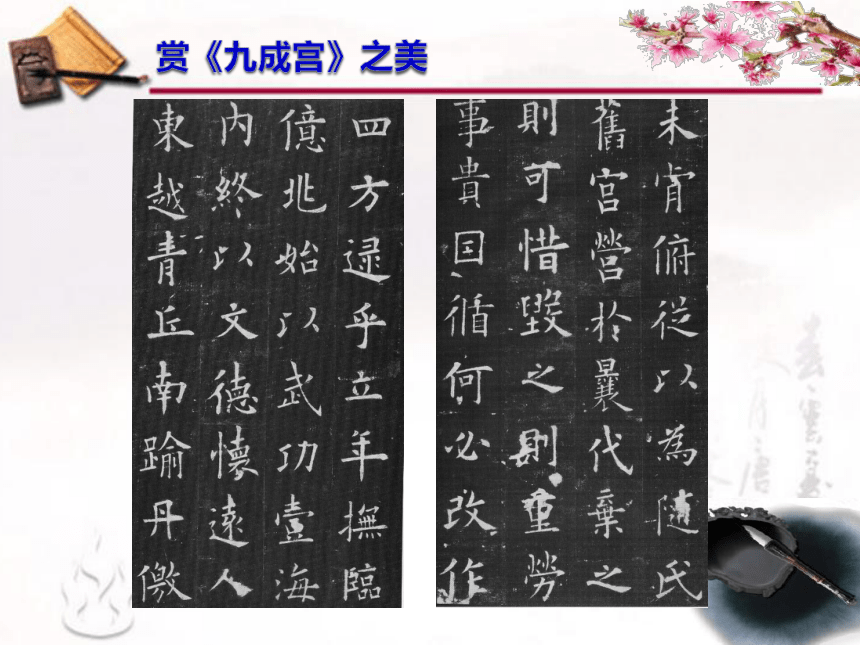 赏《九成宫》之美
四方逯乎立年撫臨
億兆始以武功壹海
内終以文德懷遠人
東越青丘南踰丹儌
未肯俯從以為隨氏
舊宫營於曩代棄之
則可惜毀之則重勞
事貴因循何必改作